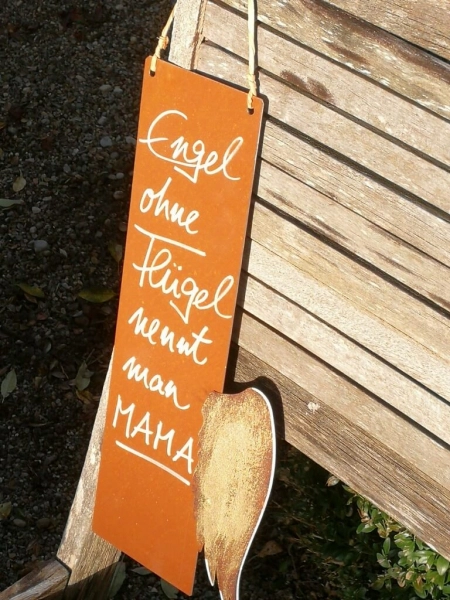 Engel
ohne
Flügel
nennt
man
MAMA